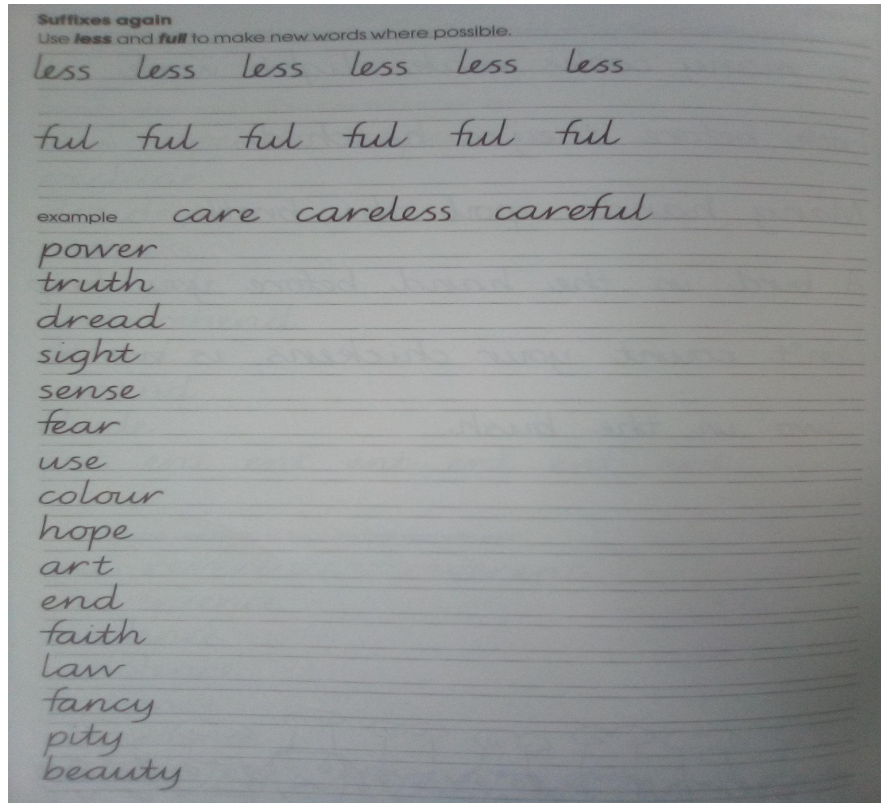 Suffixes again
Use less and full to make new words where possible.
less less less less less less
ful ful ful ful ful ful
example care careless careful
power
truth
dread
sight
sense
fear
use
colour
hope
art
end
faith
law
fancy
pity
beauty